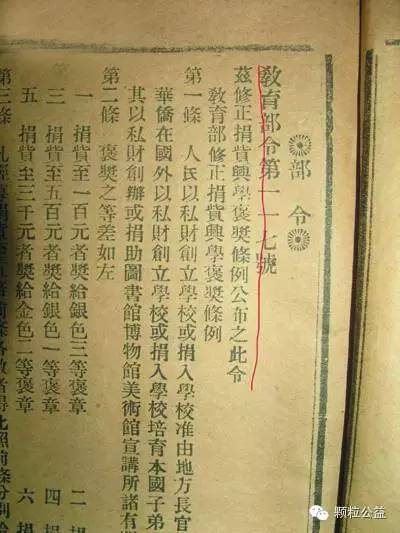 部令
教育部令第一一七號
茲修正捐貲興學褒獎條例公布之此令
教育部修正捐貲興學褒獎條例
第一條 人民以私財創立學校或捐入學校准由地方長官
華僑在國外以私財創立學校或捐入學校培育本國子弟
其以私財創辦或捐助圖書館博物館美術館宣講所諸有
第二條 褒獎之等差如左
一 捐貲至一百元者獎給銀色三等褒章 二
三 捐貲至五百元者獎給銀色一等褒章 四 捐
五 捐貲至三千元者獎給金色二等褒章 六 捐
第三條
颗粒公益